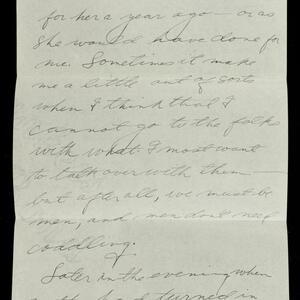 for her a year ago — or as
she would have done for
me. Sometimes it make
me a little out of sorts
when I think that I
cannot go to the folks
with what I most want
to talk over with them —
but after all, we must be
men, and men don't need
coddling.
Later in the evening when
turned in